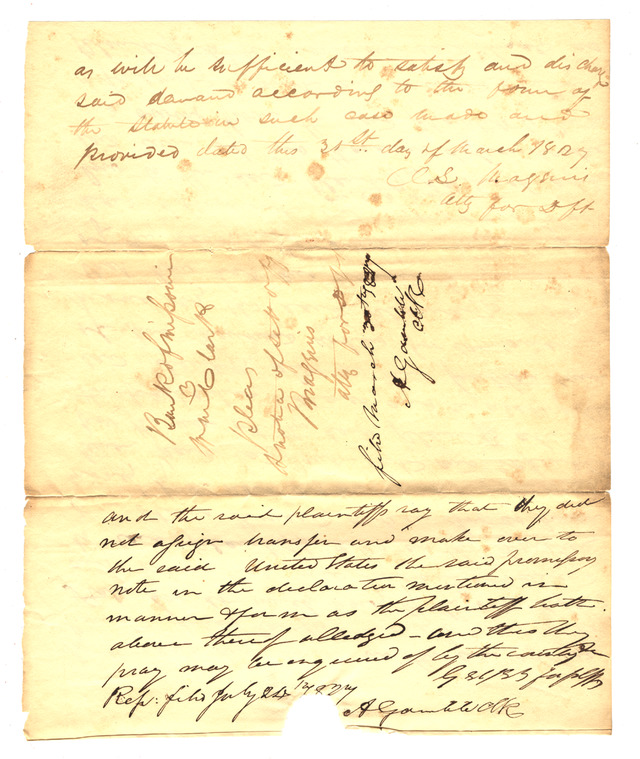 as will be sufficient to satisfy and discharge
said demand according to the form of
the Statute in such case made and
provided dated this 30th day of March 1827
Magenis
Atty for Dft
Bank of Missouri
vs
Wm Clark
Pleas
& notice of set off
Magenis
atty for Dft
filed March 30th 1827
A Gamble Clk
and the said plaintiffs say that they did
not assign transfer and make over to
the said United States the said promissory
note in the declaration mentioned in
manner & form as the plaintiff hath
above thereof alledged – and this they
pray may be enquired of by the country &c
for plffs
Rep: filed July 24th 1827
A Gamble Clk